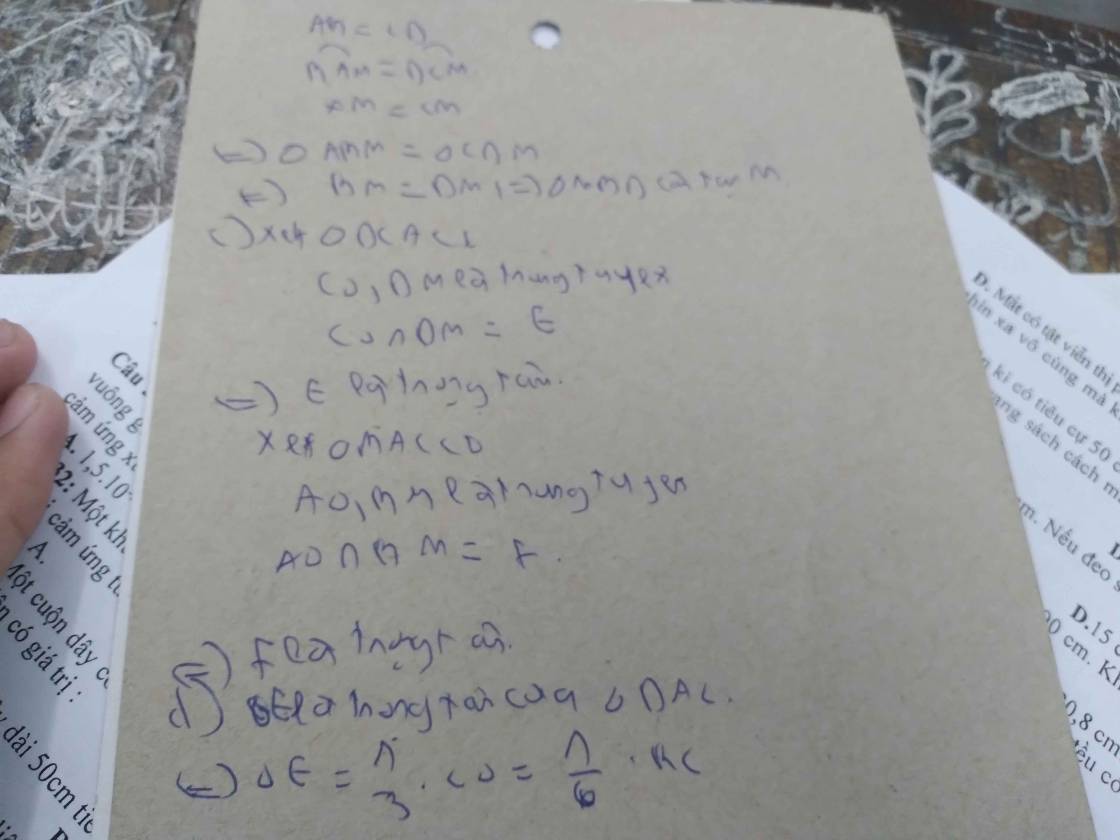 AB = CD
BAM = DCM
AM = CM
=> Δ ABM = Δ CDM
=> BM = DM, => Δ MBD cân tại M
c) Xét Δ DAC
CO, DM là trung tuyến
CO ∩ DM = E
=> E là trọng tâm.
Xét Δ BAC
AO, BM là trung tuyến
AO ∩ BM = F.
=> F là trọng tâm.
d) E là trọng tâm của Δ DAC.
=> OE = 1/3 . CO = 1/6 . BC
Câu
vuông g
cảm ứng x
A. 1,5.10
32: Một kh
cảm ứng t
A.
Một cuộn dây c
ên có giá trị :
dài 50cm tiê
D. Mắt có tật viễn thị p
hìn xa vô cùng mà k
kì có tiêu cự 50 c
ang sách cách m
m. Nếu đeo s
D.15 c
00 cm. Kh
0,8 cm
đều có